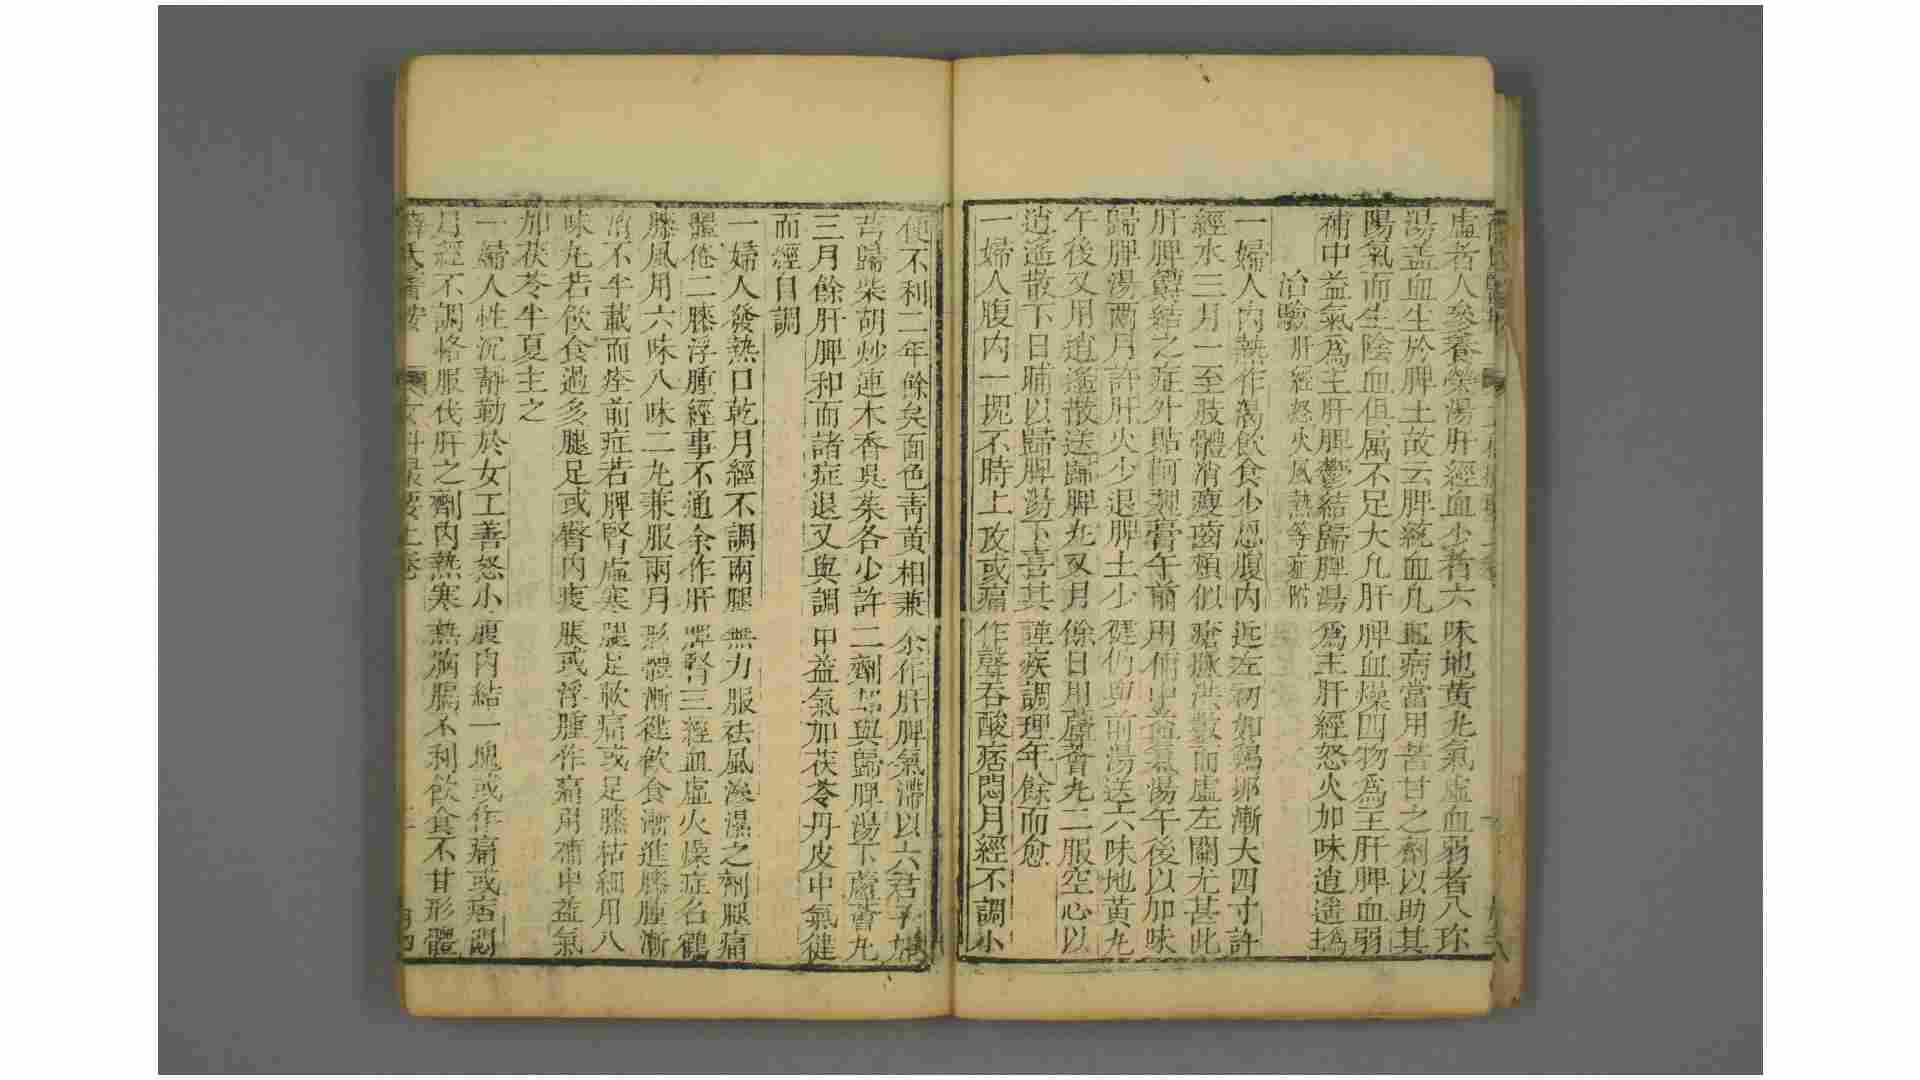 虛者人參養榮湯肝經血少者六味地黃丸氣虛血弱者八珍
湯盖血生於脾土故云脾統血凡血病當用苦甘之劑以助其
陽氣而生陰血但屬不足大凡肝脾血燥四物爲主肝脾血弱
補中益氣爲主肝脾鬱結歸脾湯爲主肝經怒火加味逍遥爲
治驗肝經怒火風熱等症附
一婦人内熱作渴飲食少思腹内近左初如鷄卵漸大四寸許
經水三月一至肢體消瘦齒頰似瘡脉洪數而虛左關尤甚此
肝脾鬱結之症外貼阿魏膏午前用補中益氣湯午後以加味
歸脾湯兩月許肝火少退脾土少健仍與前湯送六味地黃丸
午後又用逍遥散送歸脾丸又月餘日用蘆薈丸二服空心以
逍遥散下日晡以歸脾湯下喜其謹疾調理年餘而愈
一婦人腹内一塊不時上攻或痛作聲吞酸痞悶月經不調小
便不利二年餘矣面色青黃相兼余作肝脾氣滯以六君子加
芎歸柴胡炒連木香吳茱各少許二劑却與歸脾湯下蘆薈丸
三月餘肝脾和而諸症退又與調中益氣加茯苓丹皮中氣健
而經自調
一婦人發熱口乾月經不調兩腿無力服祛風滲濕之劑腿痛
體倦二膝浮腫經事不通余作肝脾腎三經血虛火燥症名鶴
膝風用六味八味二丸兼服兩月形體漸健飲食漸進膝腫漸
消不半載而痊前症若脾腎虛寒腿足軟痛或足膝枯細用八
味丸若飲食過多腿足或臀内痠脹或浮腫作痛用補中益氣
加茯苓半夏主之
一婦人性沉靜勤於女工善怒小腹内結一塊或作痛或痞悶
月經不調恪服伐肝之劑内熱寒熱胸膈不利飲食不甘形體
薛氏醫按 女科撮要上卷